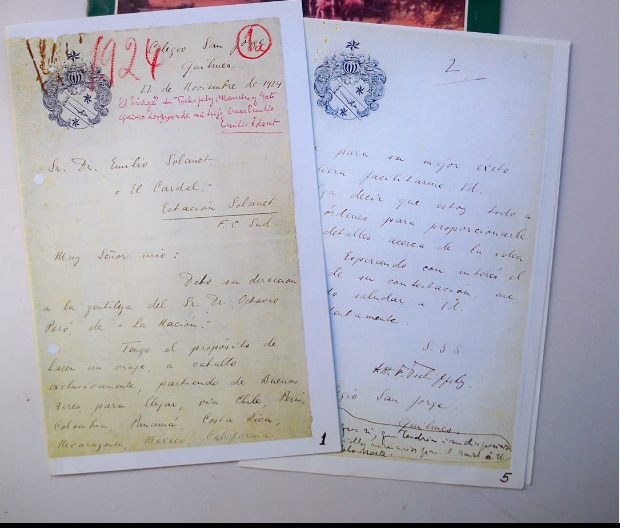 1924
1a
Colegio San Jorge
Quilmes.
22 de Noviembre de 1924
El viaje de Tschiffely, Mancha y Gato
Emilio Solanet
Sr. Dr. Emilio Solanet
"El Cardal"
Estación Solanet
F C Sud
Muy Señor mio:
Debo su direccion
a la gentileza del Sr. Dr. Octavio
Peró, de "La Nación".
Tengo el propósito de
hacer un viaje, a caballo
exclusivamente, partiendo de Buenos
Aires para llegar, via Chile, Perú,
Colombia, Panamá, Costa Rica,
Nicaragua, México, California
1
2
para su mejor exito
facilitarme Vd.
decir que estoy todo a
órdenes para proporcionarle
detalles acerca de la idea
Esperando con interés el
de su contestación, me
saludar a Vd.
atentamente.
S. S. S.
A. F. Tschiffely.
Colegio San Jorge.
Quilmes
que si, que tendria
5